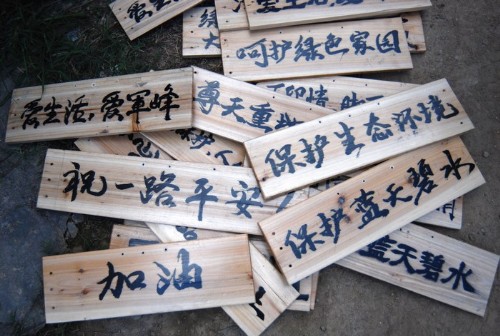 爱生活
呵护绿色家园
爱生活,爱军峰
尊天重
保护生态环境
祝一路平安
保护蓝天碧水
蓝天碧水
加油